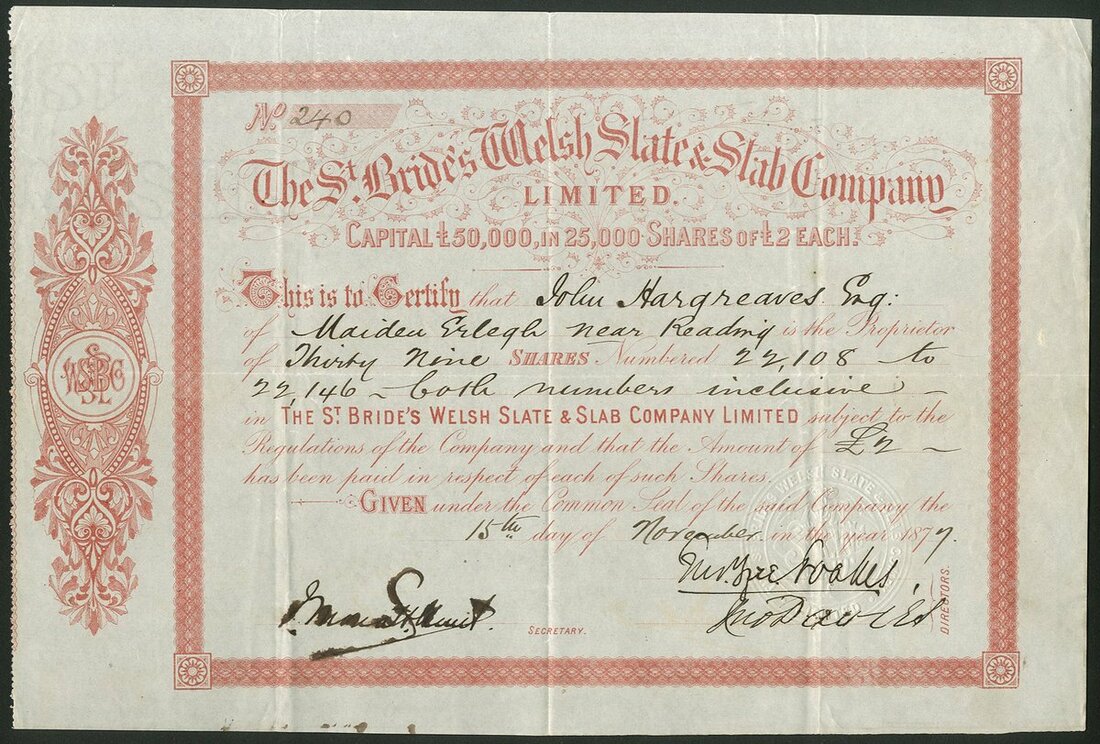 No. 240
The St. Bride's Welsh Slate & Slab Company
LIMITED.
CAPITAL £50,000, IN 25,000 SHARES OF £2 EACH.
This is to Certify that John Hargreaves Esq:
of Maiden Erlegh near Reading is the Proprietor
of Thirty Nine SHARES Numbered 22,108 to
22,146 - both numbers inclusive -
in THE ST. BRIDE'S WELSH SLATE & SLAB COMPANY LIMITED subject to the
Regulations of the Company and that the Amount of £2 -
has been paid in respect of each of such Shares.
GIVEN under the Common Seal of the said Company the
15th day of November in the year 1877.
Noakes
Jno Davies
DIRECTORS.
SECRETARY.